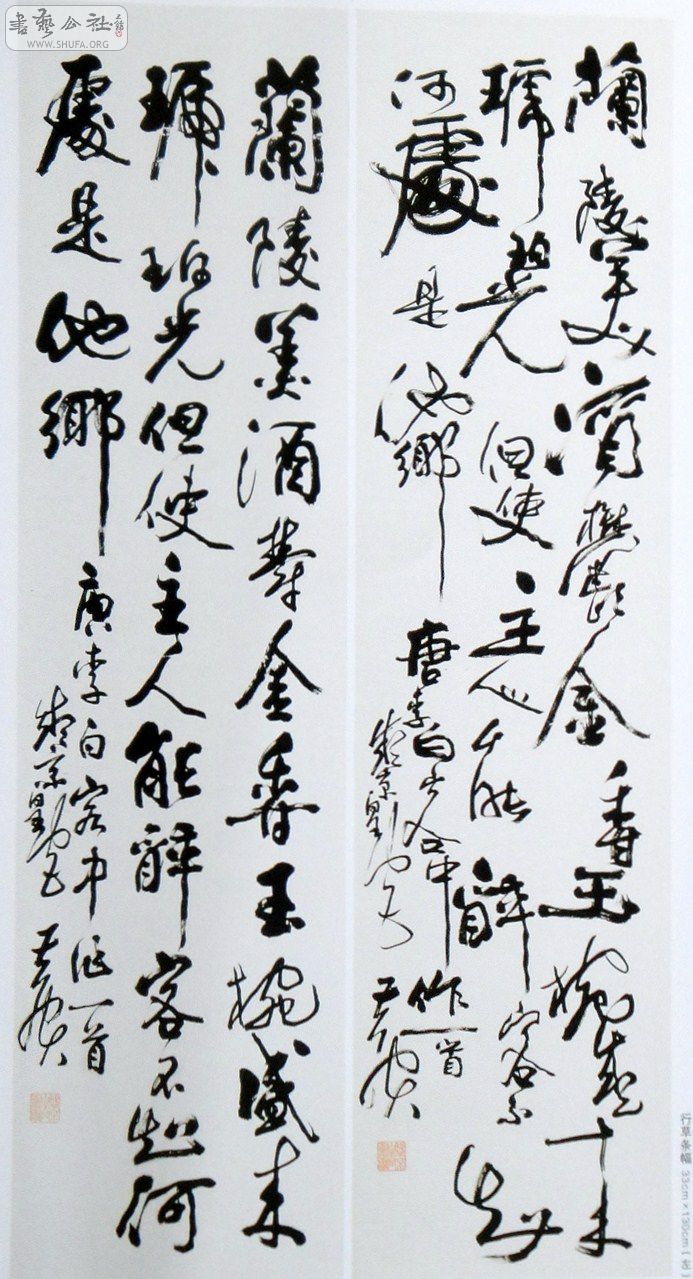 書藝公社
WWW.SHUFA.ORG
蘭陵美酒鬱金香玉椀盛来
琥珀光但使主人能醉客不知
何處是他鄉
唐李白客中作一首
蘭陵美酒鬱金香玉椀盛来
琥珀光但使主人能醉客不知何
處是他鄉
唐李白客中作一首
行草条幅 33cm×130cm